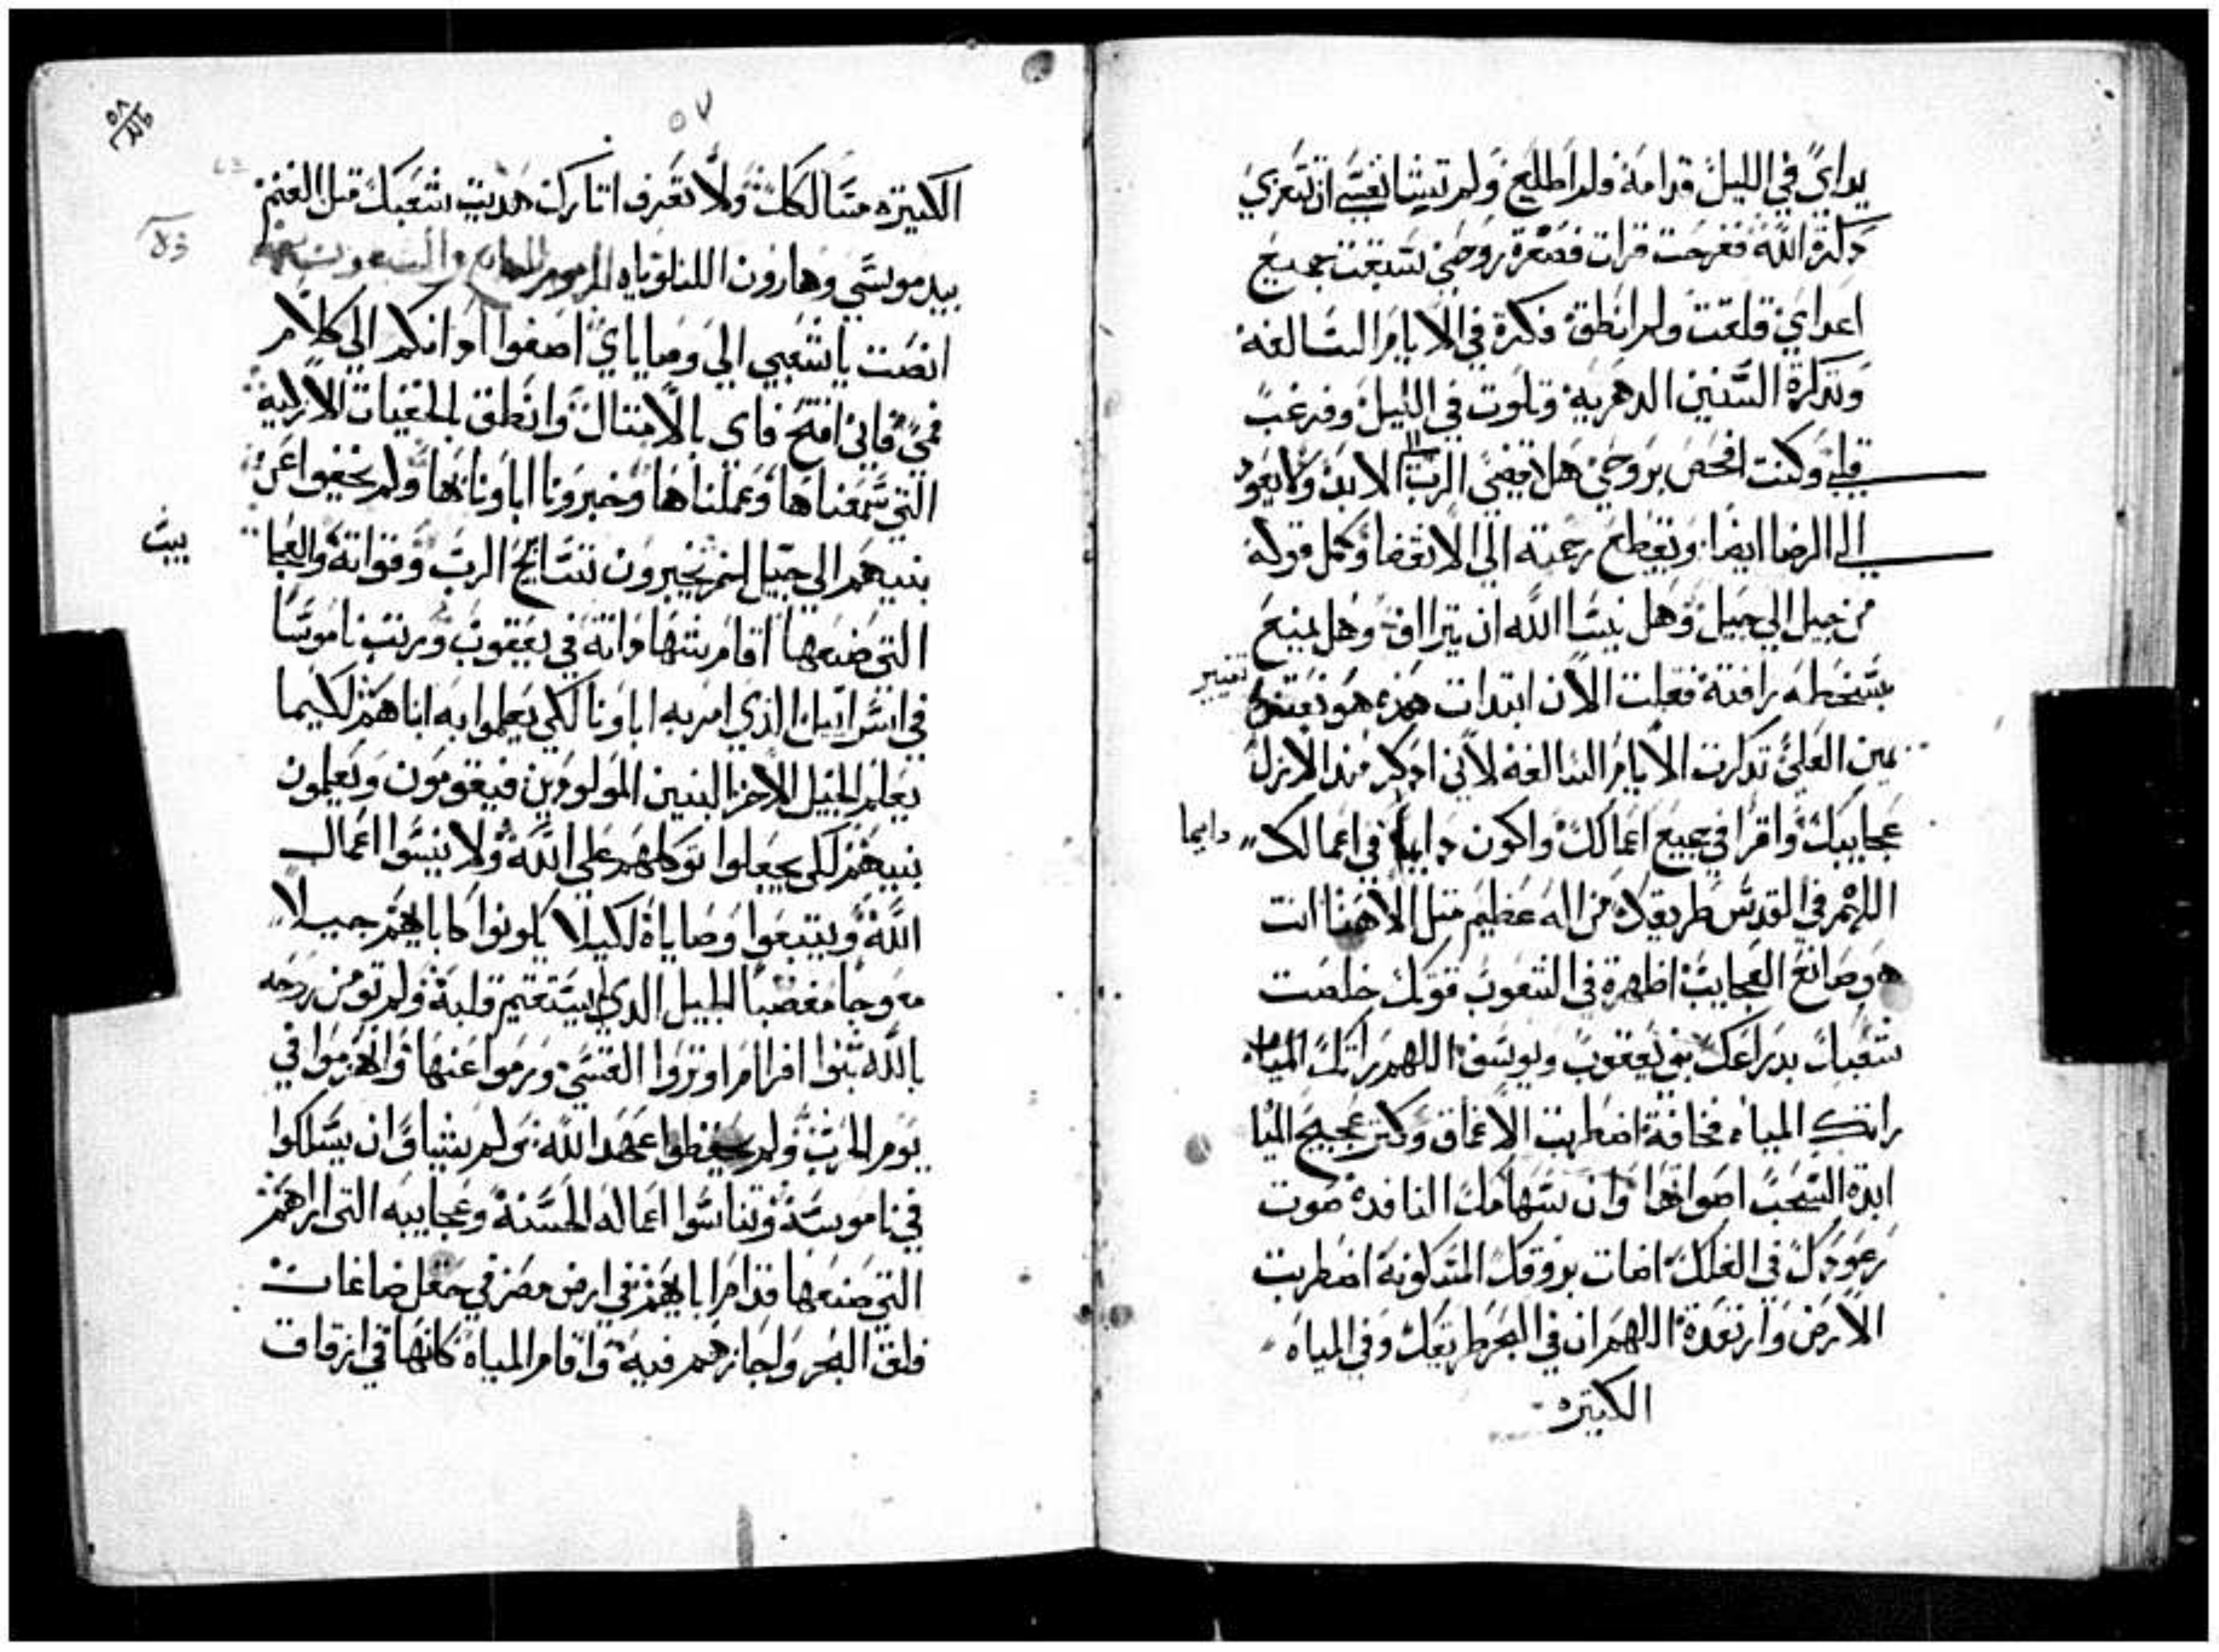 يداي في الليل قدامه ولم اطلع ولم تيشا نفسي ان تتعزي
دكرة الله ففرحت قرات فصغرة روحي سبقت جميع
اعداي قلقت ولم انطق فكرة في الايام السالفه
وتدكرة السنين الدهريه وتلوت في الليل
قلبي وكنت افحص بروحي هل يقضي الرب الي الابد ولا يعود
الي الرضا ايضا ويقطع رحمته الي الانقضا وكمل قوله
من جيل الي جيل وهل ينسا الله ان يتراف وهل يمنع
بسخطه رافته فقلت الان ابتدات هده هو
تغيير
يمين العلي تدكرت الايام السالفه لاني ادكر مند الازل
عجايبك واقرا في جميع اعمالك واكون دايما في اعمالك
دايما
اللهم في القدس طريقك من اله عظيم متل الاهنا انت
هو صانع العجايب اظهرة في الشعوب قوتك خلصت
شعبك بدراعك بني يعقوب ويوسف اللهم راتك المياه
راتك المياه فخافة اضطربت الاعماق وكتر عجيج الميا
ابدة السحب اصواتها وان سهامك النافدة صوت
رعودك في الفلك اضات بروقك المسكونة اضطربت
الارض وارتعدة اللهم ان في البحر طريقك وفي المياه
الكتيره
٥٧
٥٨
الكتيره مسالكك ولا تعرف اتارك هديت شعبك متل الغنم
بيد موسي وهارون الليلوياه المزمور السابع والسبعون
انصت يا شعبي الي وصاياي اصغوا ادانكم الي كلام
فمي فاني افتح فاي بالامتال وانطق بالخفيات الازلية
التي سمعناها وعملناها وخبرونا اباونا بها ولم يخفوا عن
بنيهم الي جيل اخر يخبرون بتسابيح الرب وقواته والعجا
ييب
التي صنعها اقام شهادته في يعقوب ورتب ناموسا
في اسراييل الذي امر به اباونا لكي يعلموا به ابناهم لكيما
يعلم الجيل الاخر البنين المولودين فيقومون ويعلمون
بنيهم لكي يجعلوا توكلهم علي الله ولا ينسوا اعمال
الله ويتبعوا وصاياه لكيلا يكونوا كابايهم جيلا
معوجا مغضبا الجيل الدي لم يستقيم قلبه ولم تومن روحه
بالله بنوا افرام اوتروا القسي ورموا عنها وانهزموا في
يوم الحرب ولم يحفظوا عهد الله ولم يشياوا ان يسلكوا
في ناموسه وتناسوا اعماله الحسنة وعجايبه التي اراهم
التي صنعها قدام ابايهم في ارض مصر في حقل صاغان
فلق البحر واجازهم فيه واقام المياه كانها في ازقاق